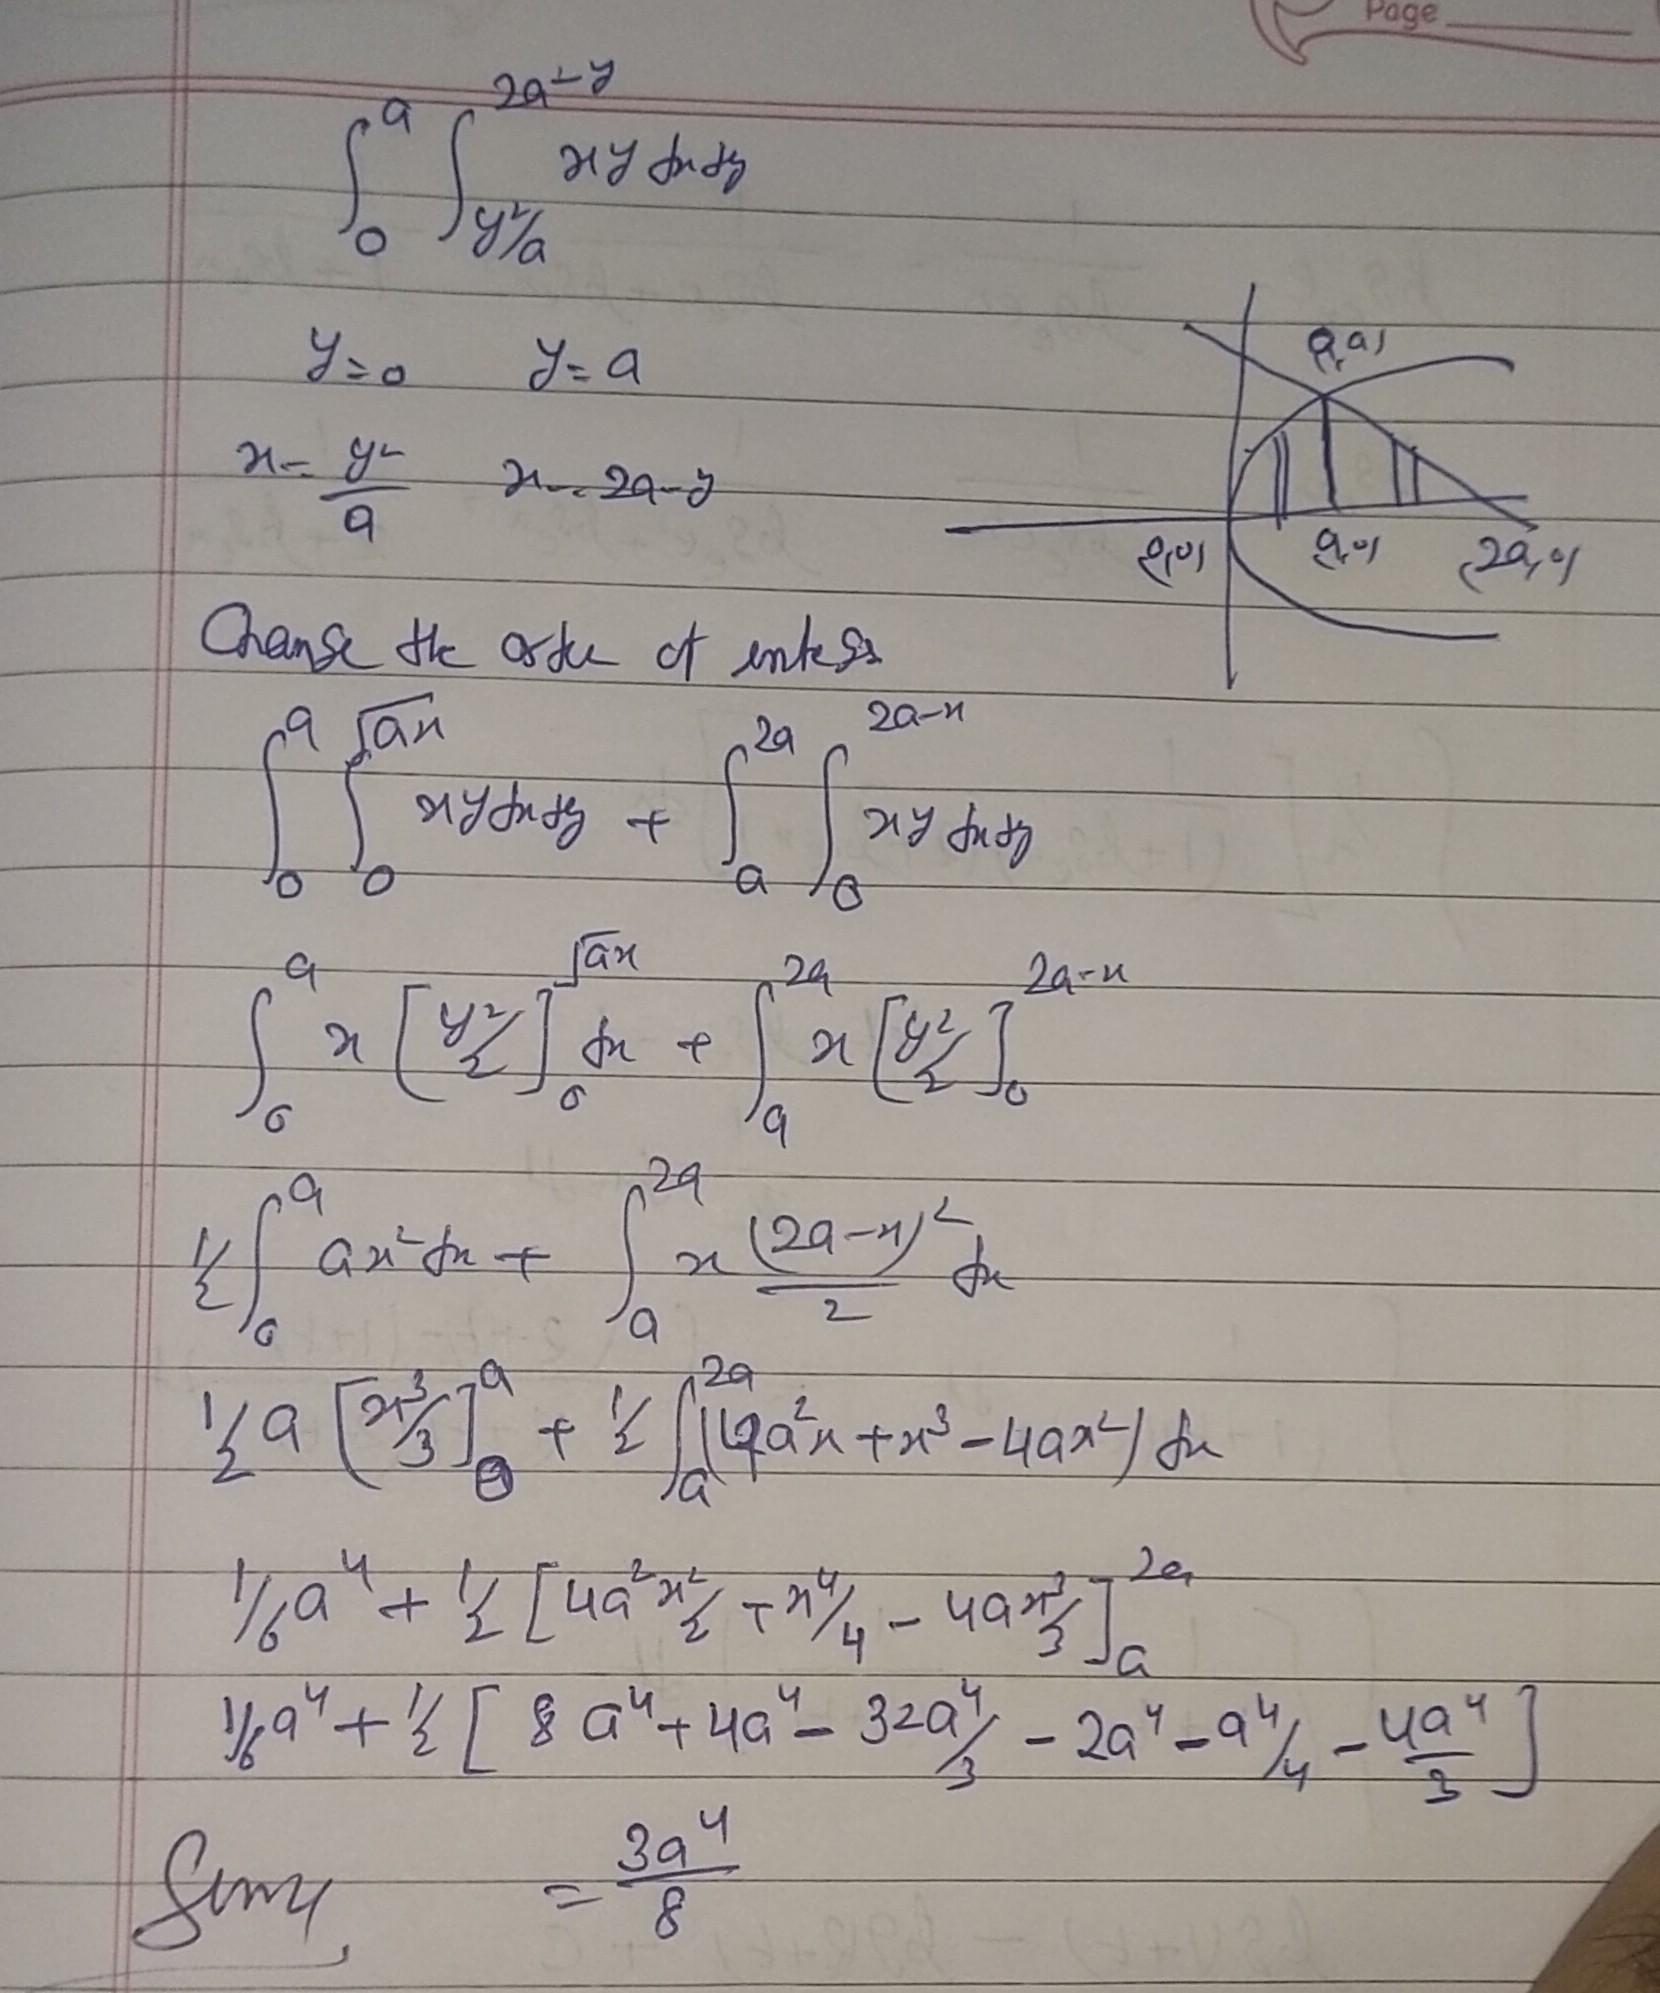 Page
∫₀^a ∫_{y²/a}^{2a-y} xy dx dy
y=0 y=a
x = y²/a x = 2a-y
(a,a)
(0,0) (a,0) (2a,0)
Change the order of
∫₀^a ∫₀^{√ax} xy dx dy + ∫_a^{2a} ∫₀^{2a-x} xy dx dy
∫₀^a x [y²/2]₀^{√ax} dx + ∫_a^{2a} x [y²/2]₀^{2a-x}
1/2 ∫₀^a ax² dx + ∫_a^{2a} x (2a-x)²/2 dx
1/2 a [x³/3]₀^a + 1/2 ∫_a^{2a} (4a²x + x³ - 4ax²) dx
1/6 a⁴ + 1/2 [4a² x²/2 + x⁴/4 - 4a x³/3]_a^{2a}
1/6 a⁴ + 1/2 [8a⁴ + 4a⁴ - 32a⁴/3 - 2a⁴ - a⁴/4 - 4a⁴/3]
= 3a⁴/8